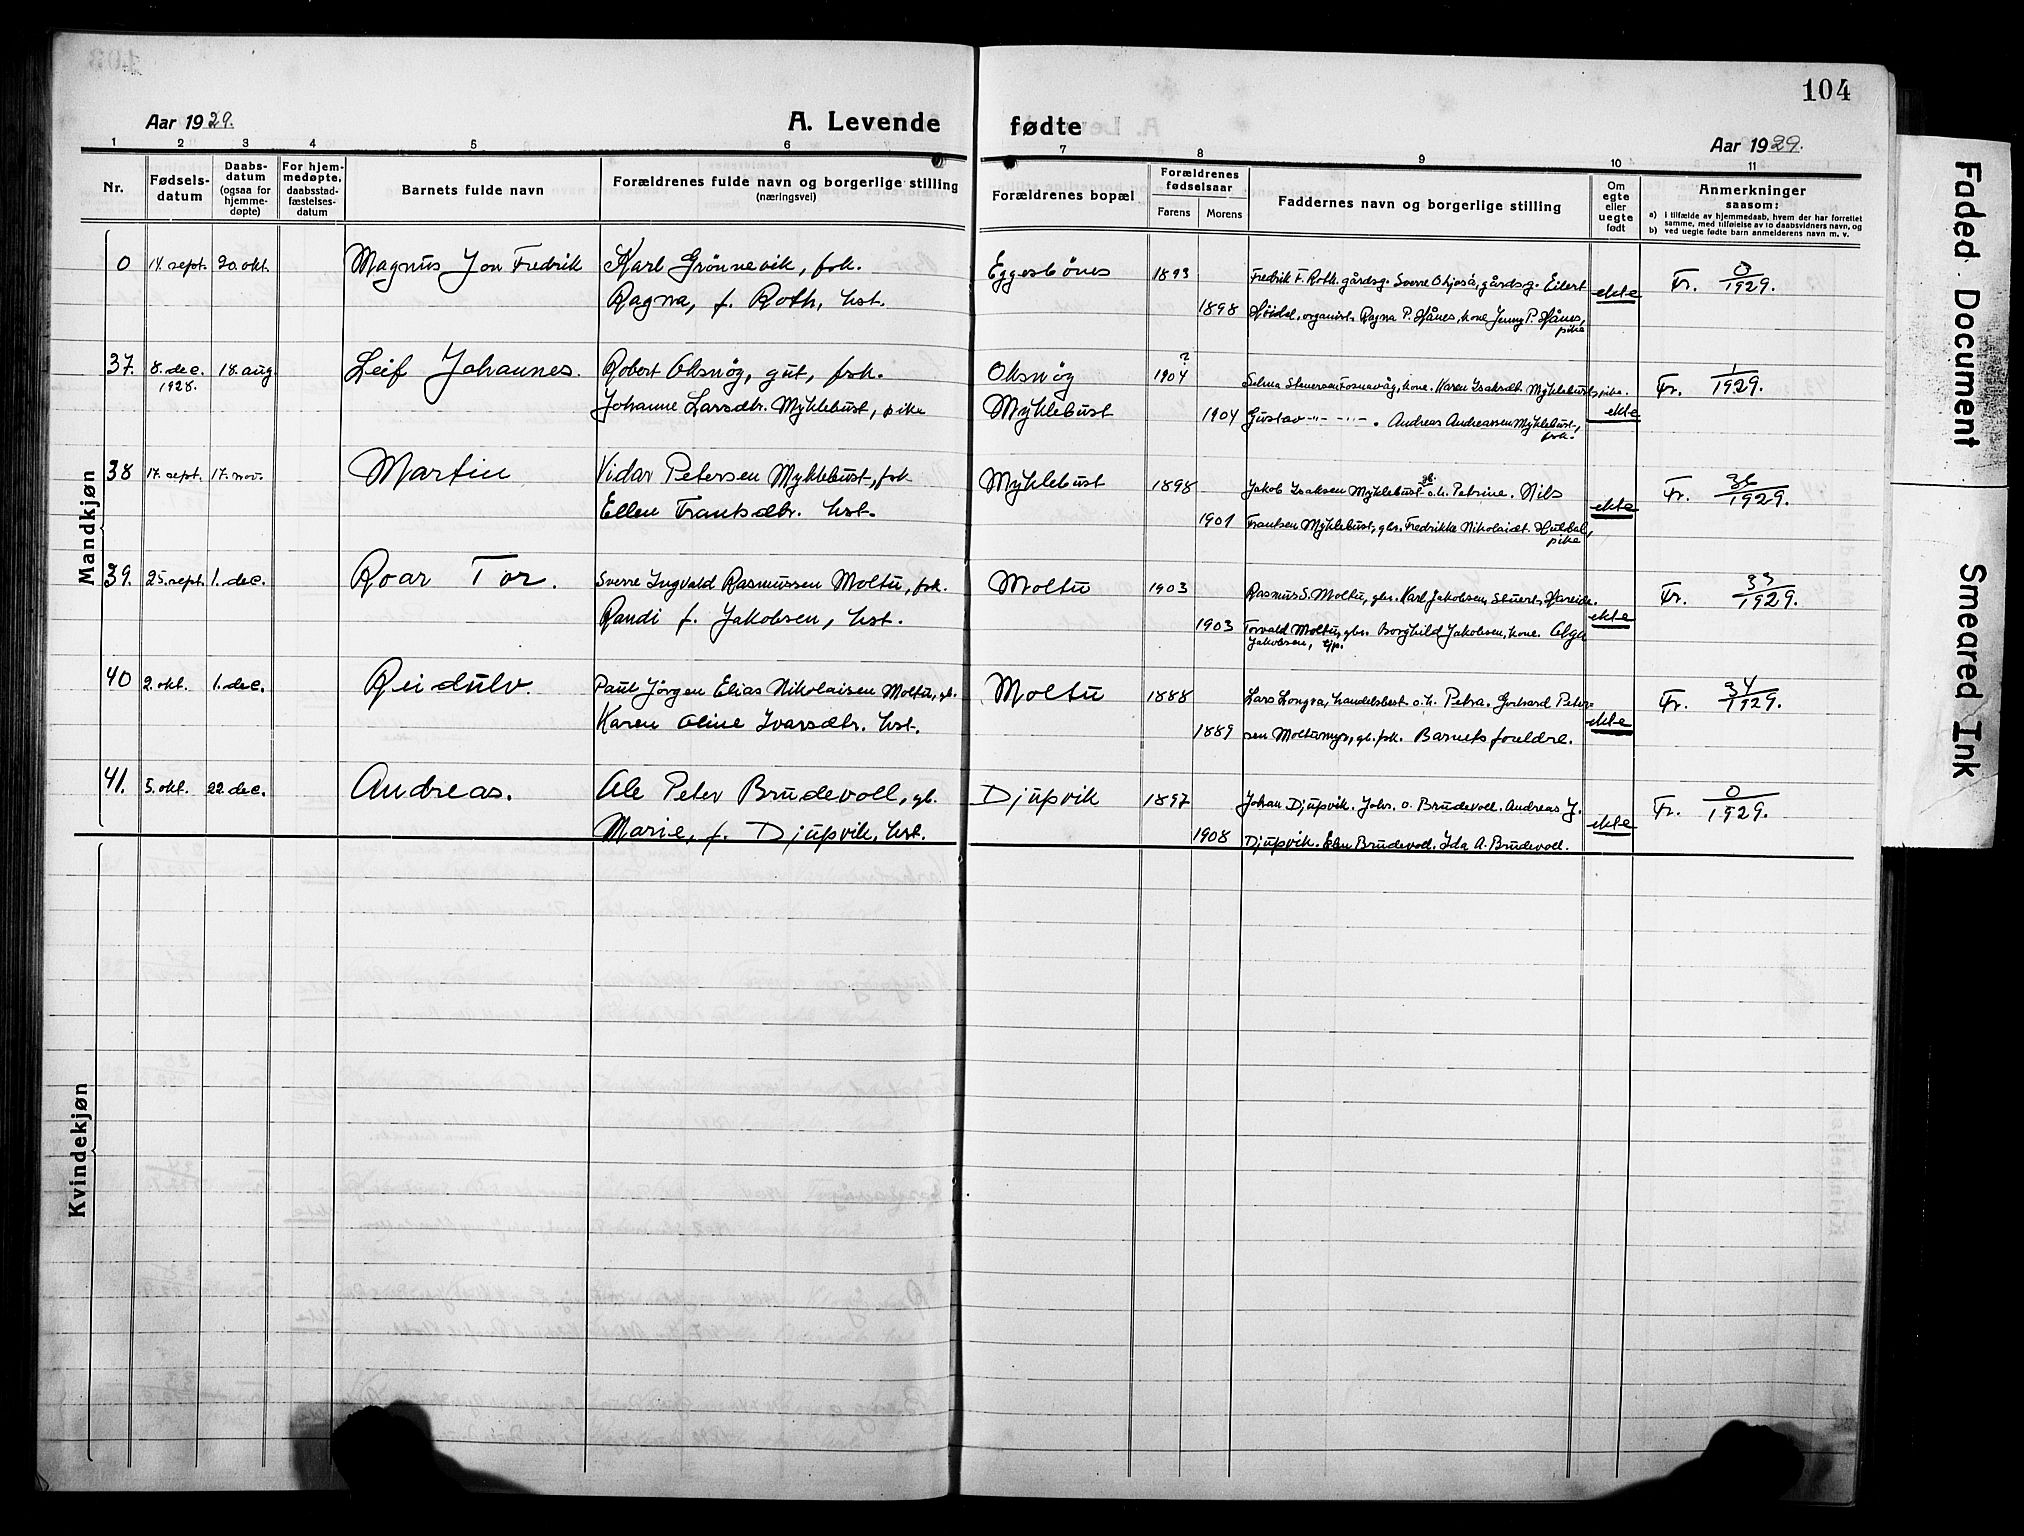 104
Aar 1929.
A. Levende fødte
Aar 1929.
1 2 3 4 5 6 7 8 9 10 11
Nr.
Fødsels-
datum
Daabs-
datum
(ogsaa for
hjemme-
døpte)
For hjem-
medøpte,
daabsstad-
fæstelses-
datum
Barnets fulde navn
Forældrenes fulde navn og borgerlige stilling
(næringsvei)
Forældrenes bopæl
Forældrenes
fødselsaar
Farens Morens
Faddernes navn og borgerlige stilling
Om
egte
eller
uegte
født
Anmerkninger
saasom:
a) I tilfælde av hjemmedaab, hvem der har forrettet
samme, med tilføielse av to daabsvidners navn, og
b) ved uegte fødte barn anmelderens navn m. v.
Mandkjøn
0 14. sept. 20. okt. Magnus Jon Fredrik Karl Grönnevik, fsk. Eggesbönes 1893 Fredrik F. Roth. gårdsg. Sverre gårdsg. Eilert ekte Fr. 0/1929.
Ragna, f. Roth, hst. 1898 organist. Ragna P. Hånes, kone Jenny P. Hånes,
pike
37. 8. dec. 1928. 18. aug Leif Johannes. Robert Oksnög, gut, fsk. Oksnög ? 1904 Selma Fosnavåg, kone. Karen Isaksdt. Myklebust, pike. ekte Fr. 1/1929.
Johanne Larsdtr. Myklebust, pike Myklebust 1904 Gustav -"- -"-. Andreas Andreassen Myklebust,
fsk.
38 17. sept. 17. nov. Martin Vidar Petersen Myklebust, fsk Myklebust 1898 Jakob Isaksen Myklebust gb. o.h. Petrine. Nils ekte Fr. 36/1929.
Ellen Frantsdtr. hst. 1901 Frantsen Myklebust, gbr. Fredrikke Nikolaidt.
pike
39. 25. sept. 1. dec. Roar Tor. Sverre Ingvald Rasmussen Moltu, fsk. Moltu 1903 Rasmus S. Moltu, gbr. Karl Jakobsen, stuert, Hareide. ekte Fr. 33/1929.
Randi f. Jakobsen, hst. 1903 Torvald Moltu, gbr. Borghild Jakobsen, kone. Olga
Jakobsen, tjp.
40 2. okt. 1. dec. Reidulv. Paul Jörgen Elias Nikolaisen Moltu, gb. Moltu 1888 Lars Longva, handelsbest. o.h. Petra. Gerhard Peter- ekte Fr. 34/1929.
Karen Oline Ivarsdtr. hst. 1889 sen Moltumyr, gb. fsk. Barnets foreldre.
41. 5. okt. 22. dec. Andreas. Ole Peter Brudevoll, gb. Djupvik 1897 Johan Djupvik. Johs. O. Brudevoll. Andreas J. ekte Fr. 0/1929.
Marie, f. Djupvik, hst. 1908 Djupvik. Brudevoll. Ida A. Brudevoll.
Kvindekjøn
Faded Document
Smeared Ink